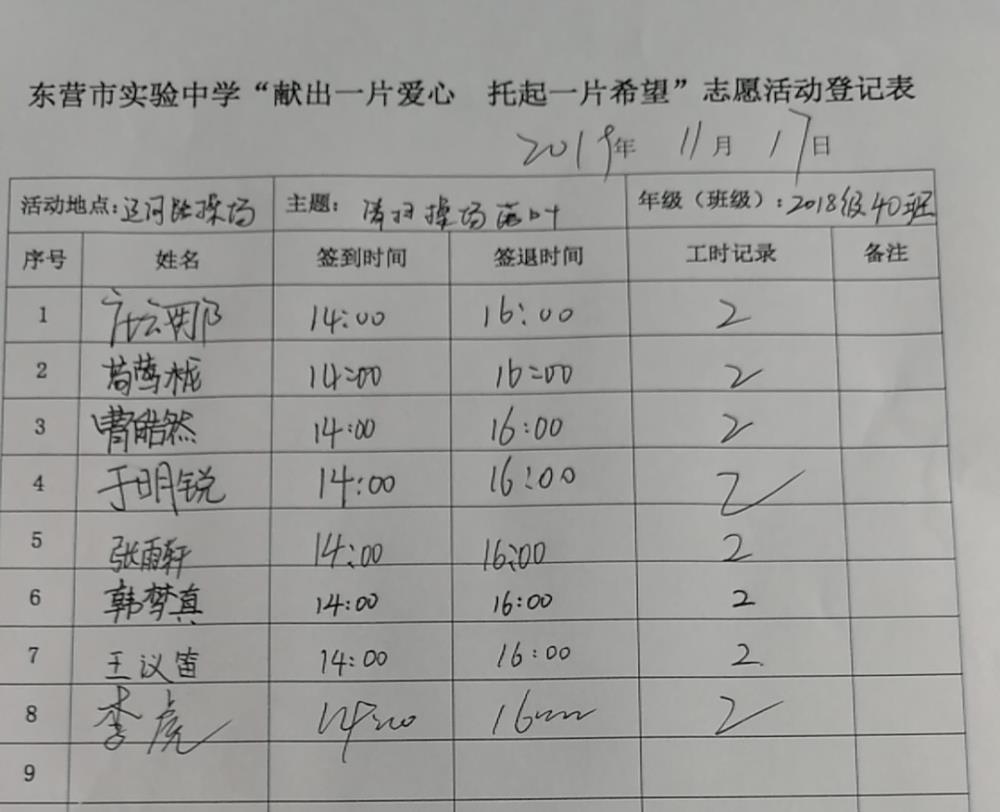 东营市实验中学“献出一片爱心 托起一片希望”志愿活动登记表
2019年 11月 17日
活动地点:运河路操场 主题: 清扫操场落叶 年级（班级）:2018级40班
序号 姓名 签到时间 签退时间 工时记录 备注
1 14:00 16:00 2
2 14:00 16:00 2
3 曹皓然 14:00 16:00 2
4 于明锐 14:00 16:00 2
5 张雨轩 14:00 16:00 2
6 韩梦真 14:00 16:00 2
7 王议笛 14:00 16:00 2
8 李虎 14:00 16:00 2
9